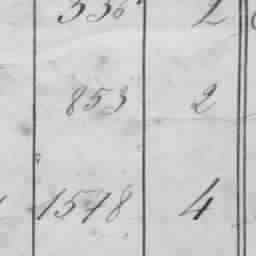 336 2
853 2
1578 4